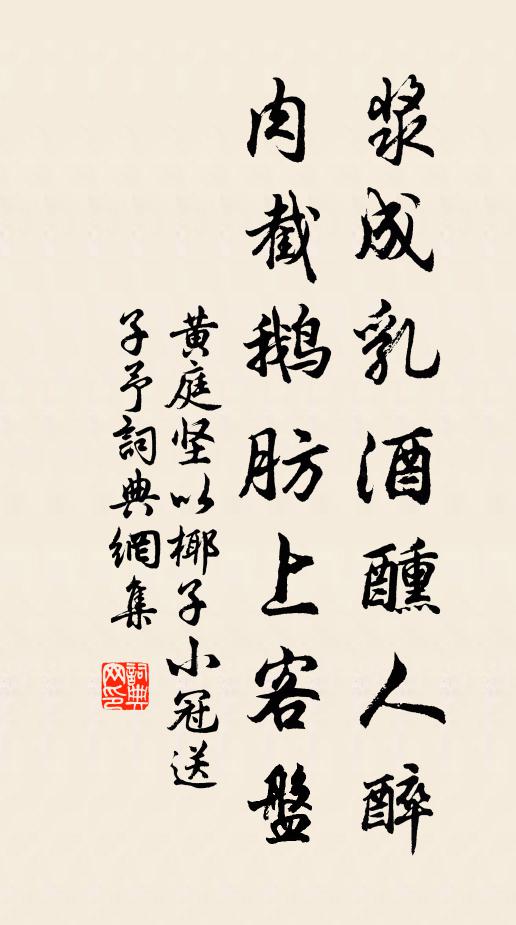 浆成乳酒醺人醉
肉截鹅肪上客盘
黄庭坚以椰子小冠送
子予詞典網集
詞典
网印